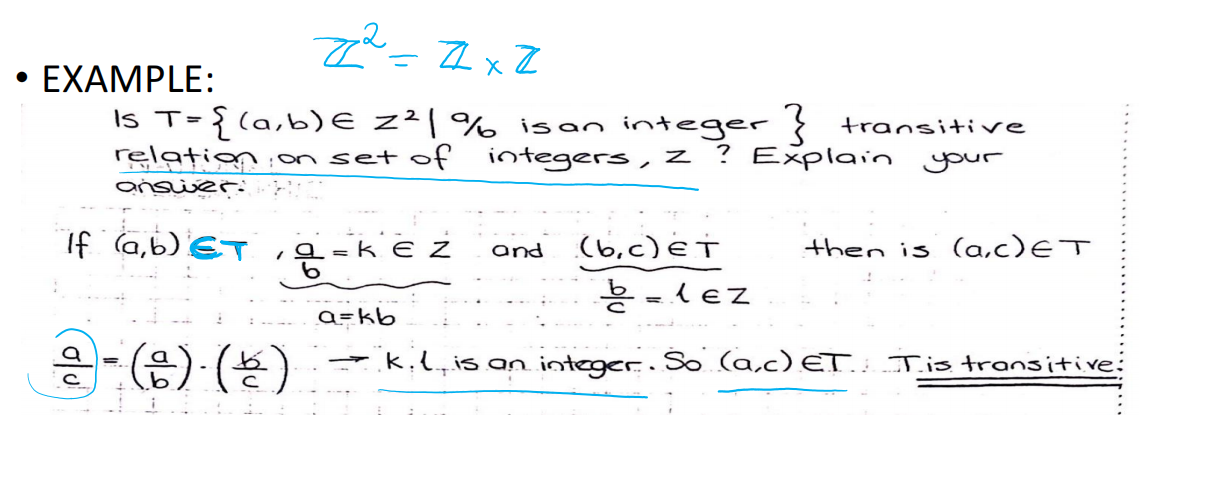 ℤ² = ℤ × ℤ
• EXAMPLE:
Is T = { (a,b) ∈ Z² | a/b is an integer } transitive
relation on set of integers, Z ? Explain your
answer.
If (a,b) ∈ T , a/b = k ∈ Z and (b,c) ∈ T then is (a,c) ∈ T
b/c = l ∈ Z
a=kb
a/c = (a/b) · (b/c) → k.l is an integer. So (a,c) ∈ T. T is transitive.